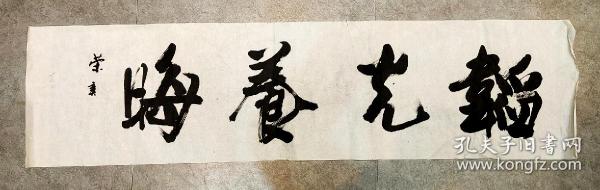 韜光養晦
榮真
孔夫子旧书网
www.kongfz.com